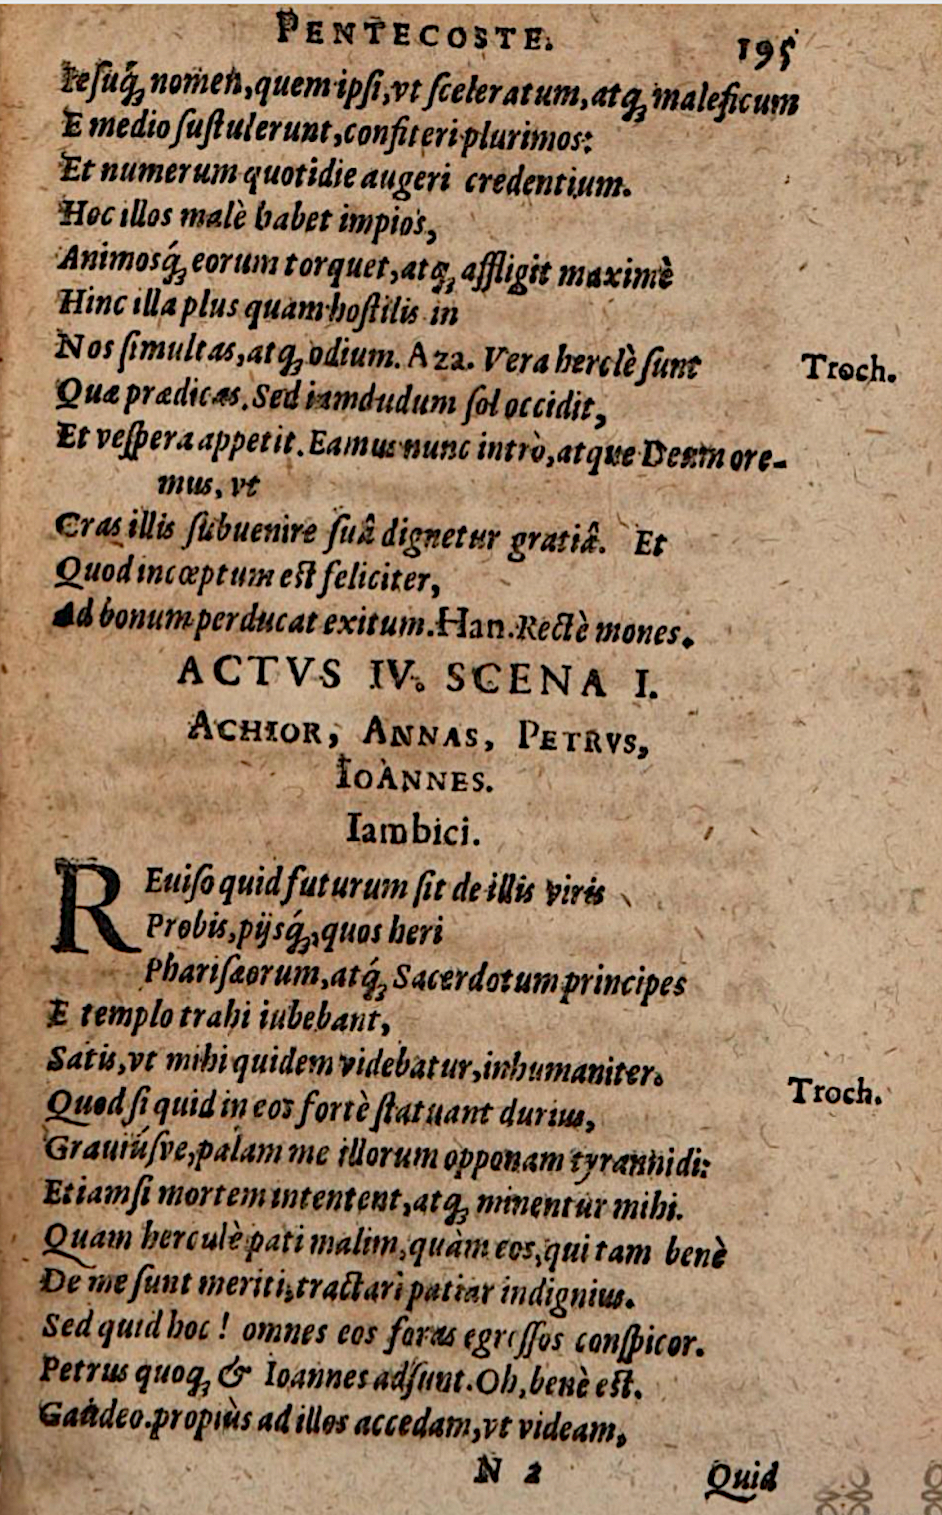 PENTECOSTE. 195
Iesuq́ꝫ nomen, quem ipsi, vt sceleratum, atqꝫ maleficum
E medio sustulerunt, confiteri plurimos:
Et numerum quotidie augeri credentium.
Hoc illos malè habet impios,
Animosq́ꝫ eorum torquet, atqꝫ affligit maximè
Hinc illa plus quam hostilis in
Nos simultas, atqꝫ odium. Aza. Vera herclè sunt Troch.
Quæ prædicas. Sed iamdudum sol occidit,
Et vespera appetit. Eamus nunc intrò, atque Deum ore-
mus, vt
Cras illis subuenire suâ dignetur gratiâ. Et
Quod incœptum est feliciter,
Ad bonum perducat exitum. Han. Rectè mones.
ACTVS IV. SCENA I.
ACHIOR, ANNAS, PETRVS,
IOANNES.
Iambici.
REuiso quid futurum sit de illis viris
Probis, pijsq́ꝫ, quos heri
Pharisæorum, atq́ꝫ Sacerdotum principes
E templo trahi iubebant,
Satis, vt mihi quidem videbatur, inhumaniter.
Quod si quid in eos fortè statuant durius, Troch.
Grauiúsve, palam me illorum opponam tyrannidi:
Etiamsi mortem intentent, atqꝫ minentur mihi.
Quam herculè pati malim, quàm eos, qui tam benè
De me sunt meriti, tractari patiar indignius.
Sed quid hoc! omnes eos foras egressos conspicor.
Petrus quoqꝫ & Ioannes adsunt. Oh, benè est.
Gaudeo. propiùs ad illos accedam, vt videam,
N 2 Quid